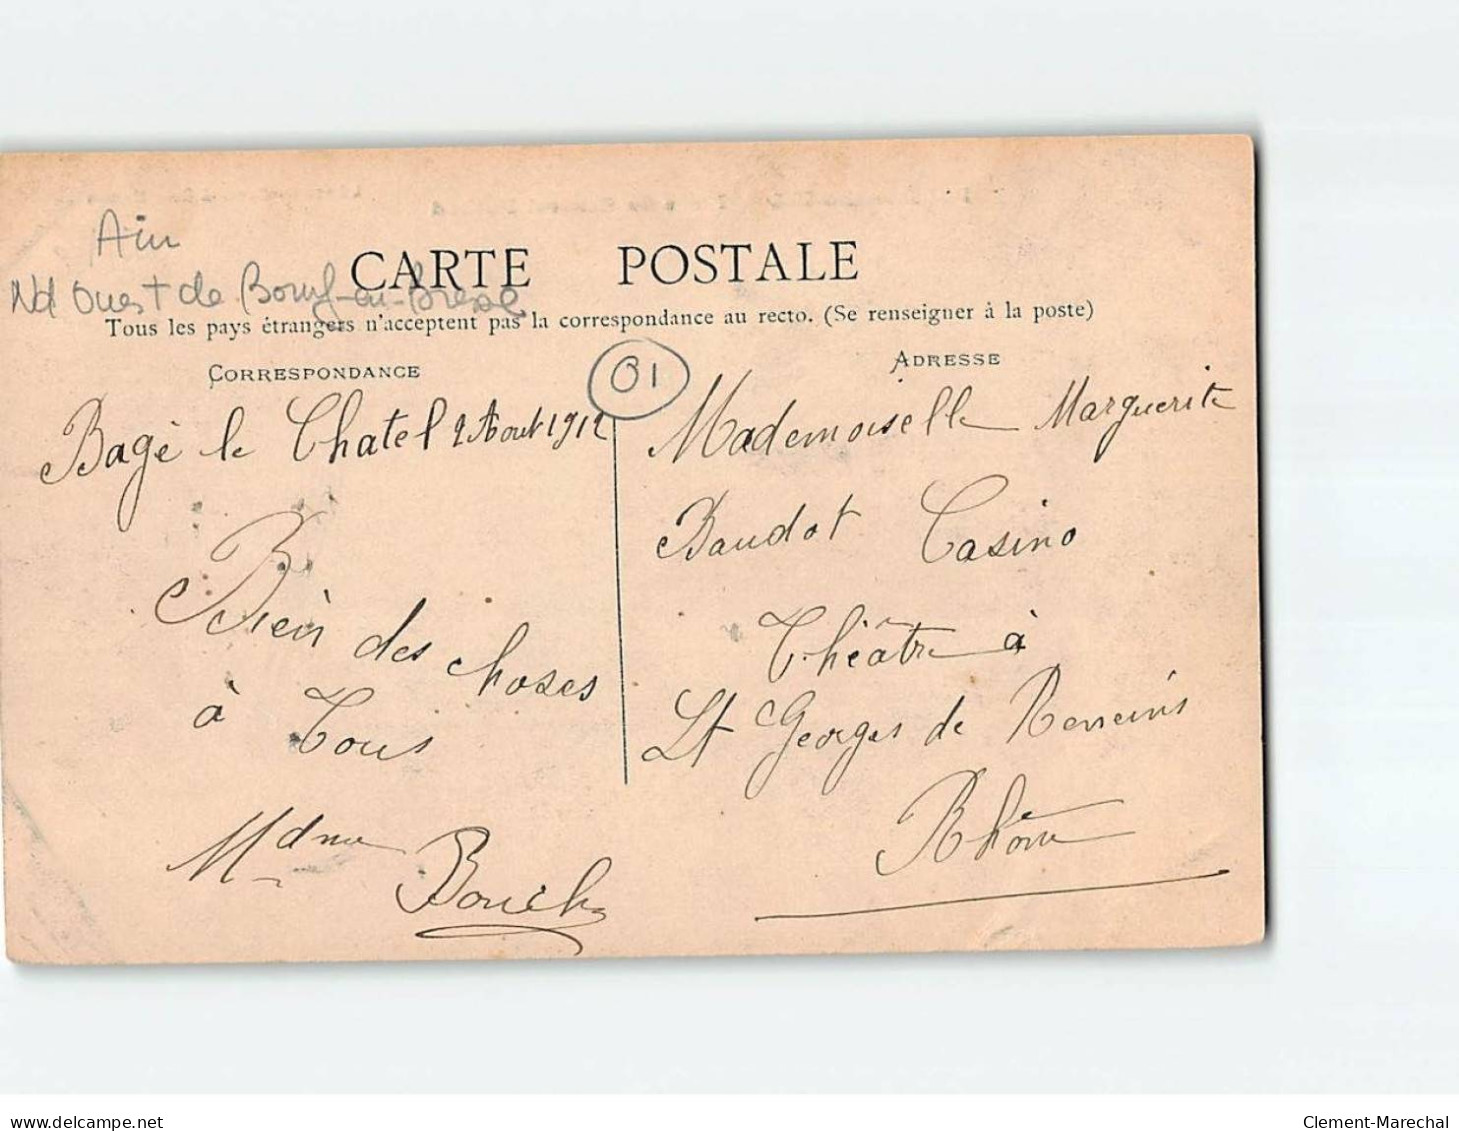 Ain
CARTE POSTALE
Nd Ouest de Bourg-en-Bresse
Tous les pays étrangers n'acceptent pas la correspondance au recto. (Se renseigner à la poste)
CORRESPONDANCE
01
Bagé le Chatel 2 Aout 1912
Bien des choses
à Tous
Mdme
ADRESSE
Mademoiselle Marguerite
Baudot Casino
Théâtre à
St Georges de Reneins
Rhône
www.delcampe.net
Clement-Marechal